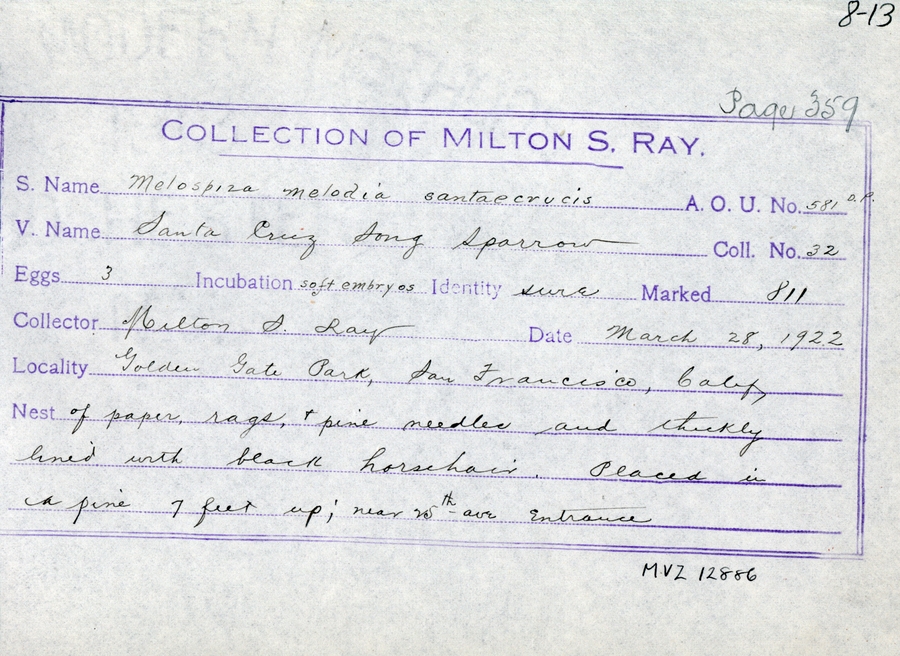 8-13
Page 359
COLLECTION OF MILTON S. RAY.
S. Name Melospiza melodia santaecrucis A. O. U. No. 581 D.P.
V. Name Santa Cruz Song Sparrow Coll. No. 32
Eggs 3 Incubation soft embryos Identity sure Marked 811
Collector Milton S. Ray Date March 28, 1922
Locality Golden Gate Park, San Francisco, Calif,
Nest of paper, rags, + pine needles and thickly
lined with black horsehair. Placed in
a pine 7 feet up; near 25th ave Entrance
MVZ 12886